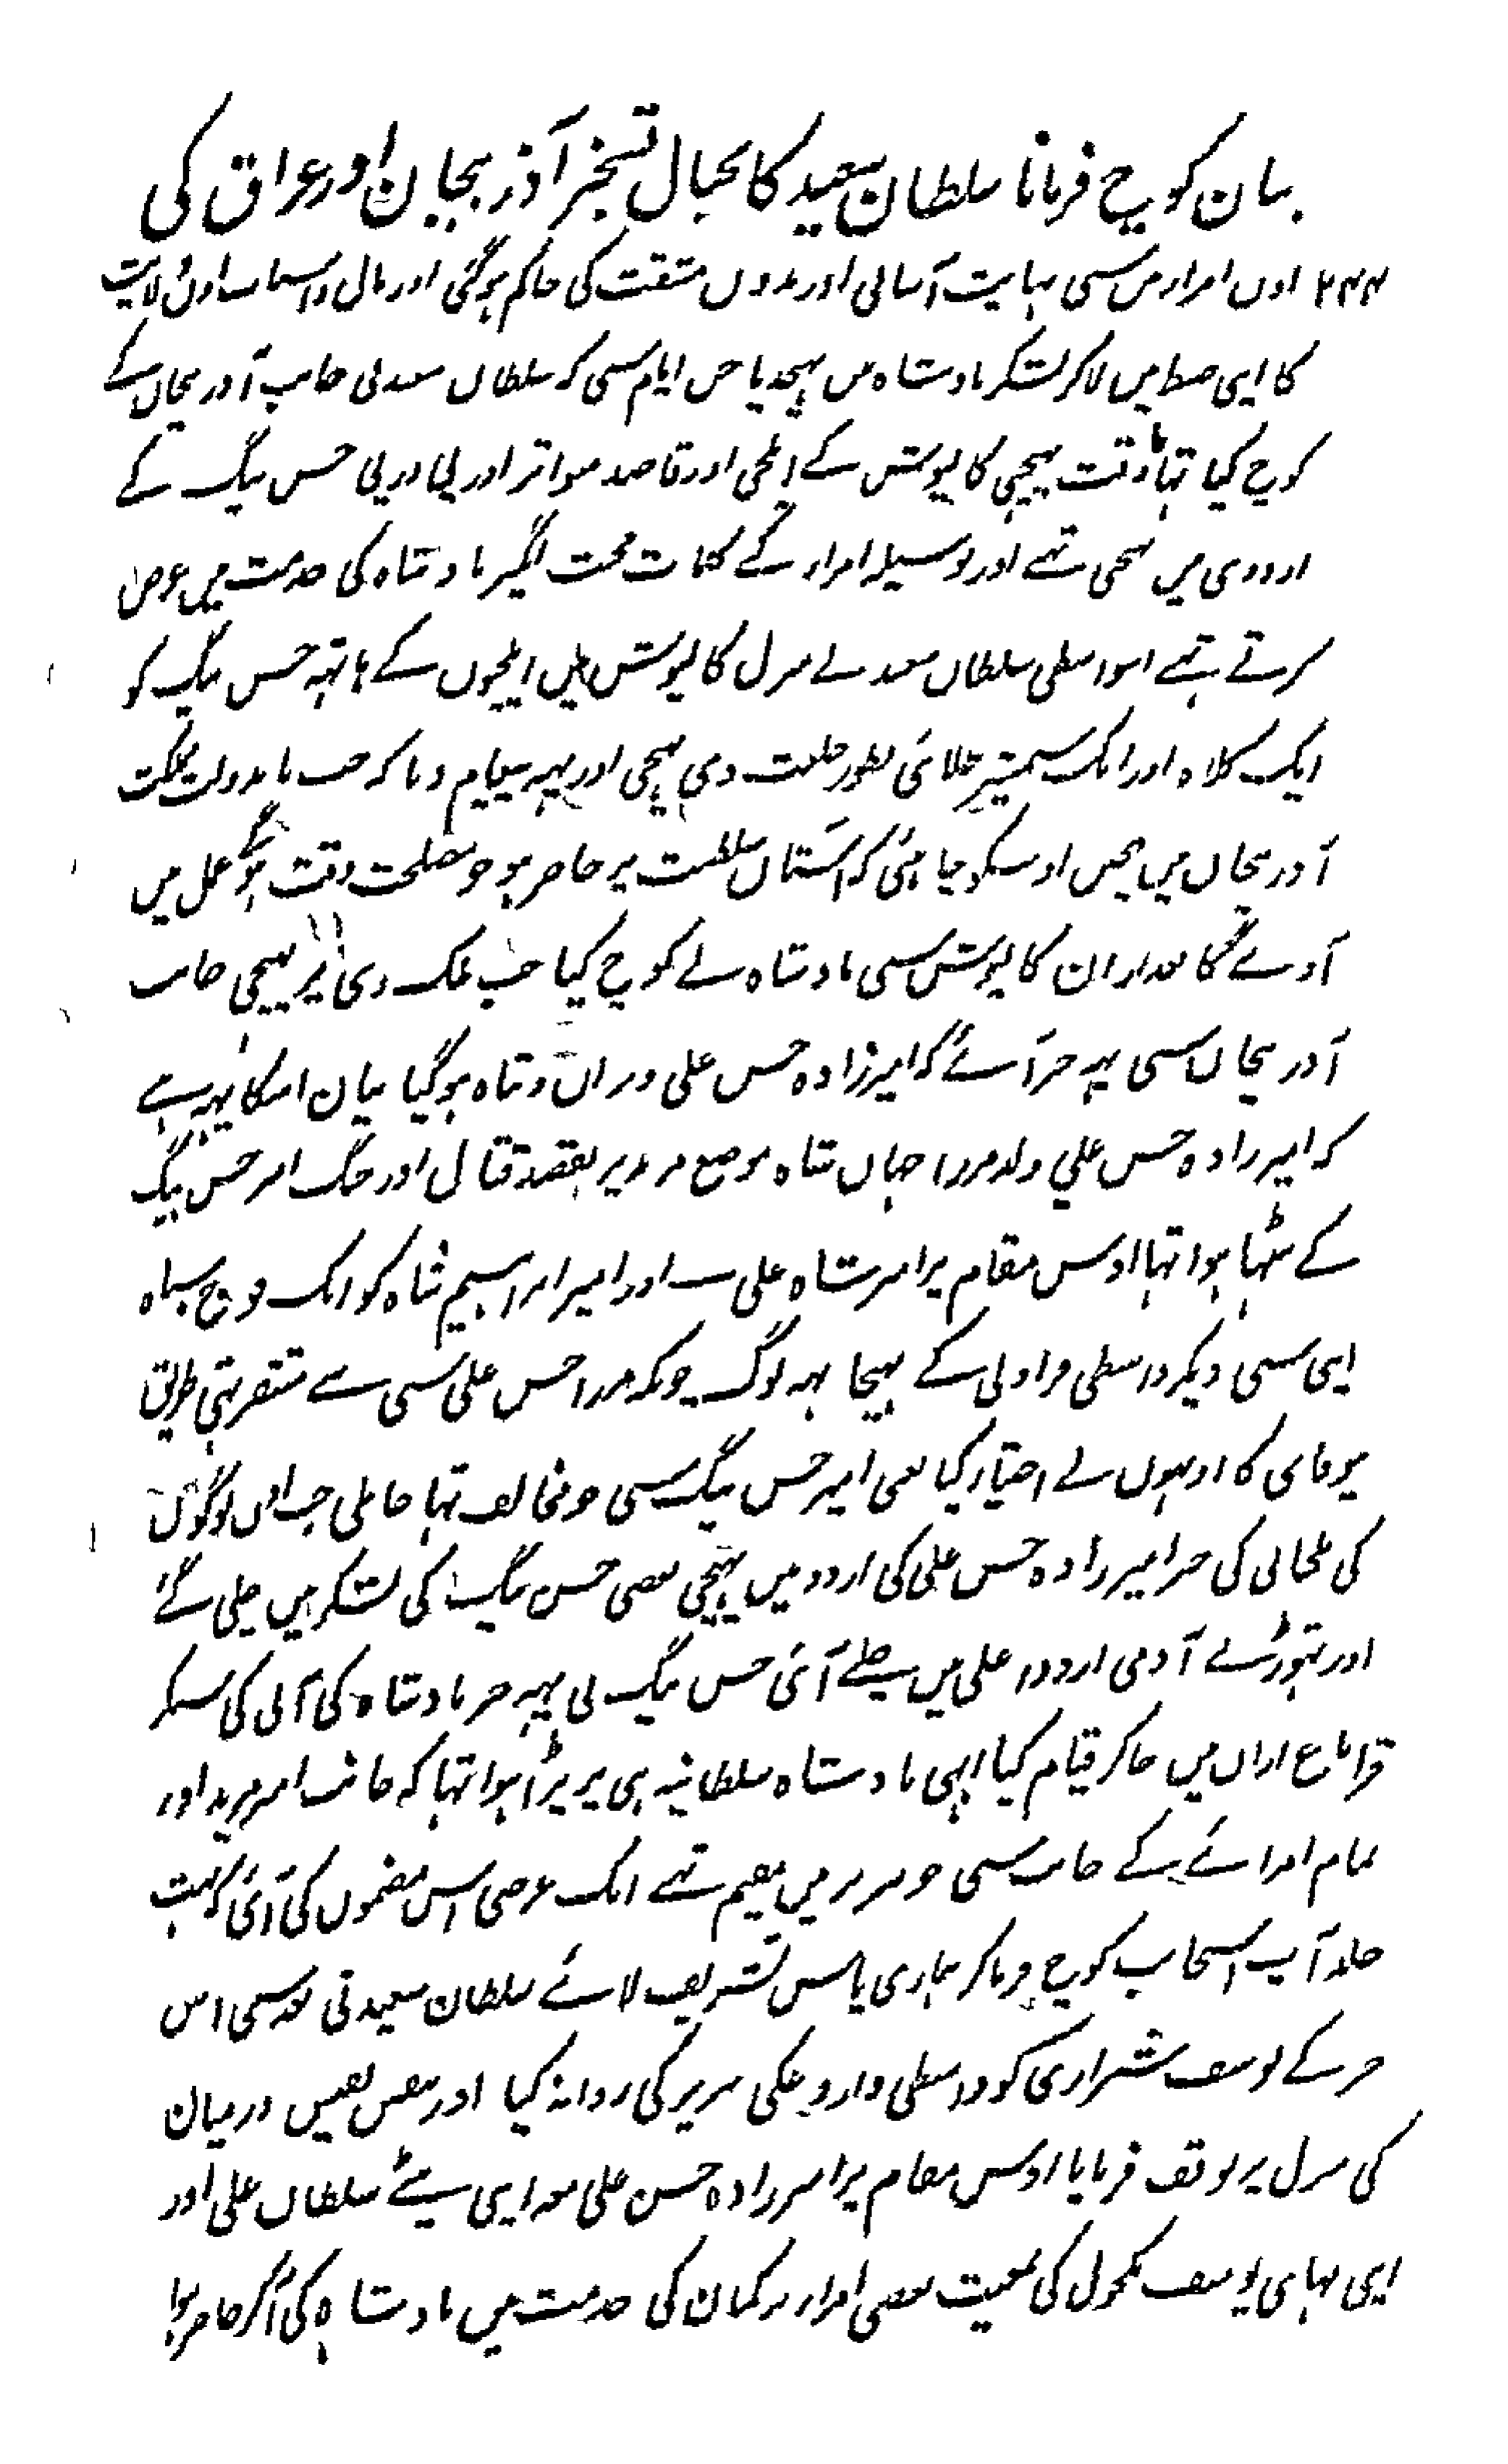 بیان کوچ فرمانا سلطان سعید کا بخیال تسخیر آذربیجان اور عراق کی
۲۴۴ اون امراء میں سی نہایت آسانی اور بدون مشقت کی حاکم ہوگئی اور مال و اسباب اون ولایت
کا اپنی ضبط میں لاکر لشکر بادشاہ میں پہنچدیا جن ایام میں کہ سلطان سعید نی جانب آذربیجان کے
کوچ کیا تہا وقت پہنچنی کالپوش کے ایلچی اور قاصد متواتر اور پی در پی حسن بیگ کے
اردوی میں پہنچی تہے اور بوسیلہ امراء کے کلمات محبت انگیز بادشاہ کی خدمت میں عرض
کرتے تہے اسواسطی سلطان سعید نے منزل کالپوش میں ایلچیوں کے ہاتہہ حسن بیگ کو
ایک کلاہ اور ایک شمشیر طلائی بطور خلعت دی بہیجی اور یہہ پیغام دیا کہ جب ما بدولت مملکت
آذربیجان میں پہنچیں اوسکو چاہئی کہ آستان سلطنت پر حاضر ہو جو مصلحت وقت ہوگی عمل میں
آوے گا بعد ازان کالپوش سی بادشاہ نے کوچ کیا جب ملک ری پر پہنچی جانب
آذربیجان سی یہہ خبر آئے کہ امیرزادہ حسن علی ویران و تباہ ہوگیا بیان اسکا یہہ ہے
کہ امیرزادہ حسن علی ولد مرزا جہان شاہ موضع مرند پر بقصد قتال اور جنگ امیر حسن بیگ
کے بیٹہا ہوا تہا اوس مقام پر امیر شاہ علی اور امیر ابراہیم شاہ کو ایک فوج سپاہ
اپنی سی دیکر واسطی قراولی کے بہیجا یہہ لوگ چونکہ مرزا حسن علی سی متنفر تہی طریق
بیوفائی کا اونہوں نے اختیار کیا یعنی امیر حسن بیگ سی جو مخالف تہا جا ملی جب ان لوگوں
کی ملجانی کی خبر امیرزادہ حسن علی کی اردو میں پہنچی بعضی حسن بیگ کی لشکر میں چلی گئے
اور تہوڑے آدمی اردو اعلی میں چلے آئی حسن بیگ نی یہہ خبر بادشاہ کی آنی کی سنکر
قراباغ اران میں جاکر قیام کیا ابہی بادشاہ سلطانیہ ہی پر پڑا ہوا تہا کہ جانب امیر مزید اور
تمام امرائے کے جانب سی جو تبریز میں مقیم تہے ایک عرضی اس مضمون کی آئی کہ بہت
جلد آپ اسجانب کوچ فرماکر ہماری پاس تشریف لائے سلطان سعید نی بعد سنی اس
خبر کے یوسف شیرازی کو واسطی داروغگی تبریز کی روانہ کیا اور بنفس نفیس درمیان
کی منزل پر توقف فرمایا اوس مقام پر امیرزادہ حسن علی معہ اپنی بیٹے سلطان علی اور
اپنی بہائی یوسف مکحول کی بمعیت بعضی امراء ترکمان کی خدمت میں بادشاہ کی آکر حاضر ہوا